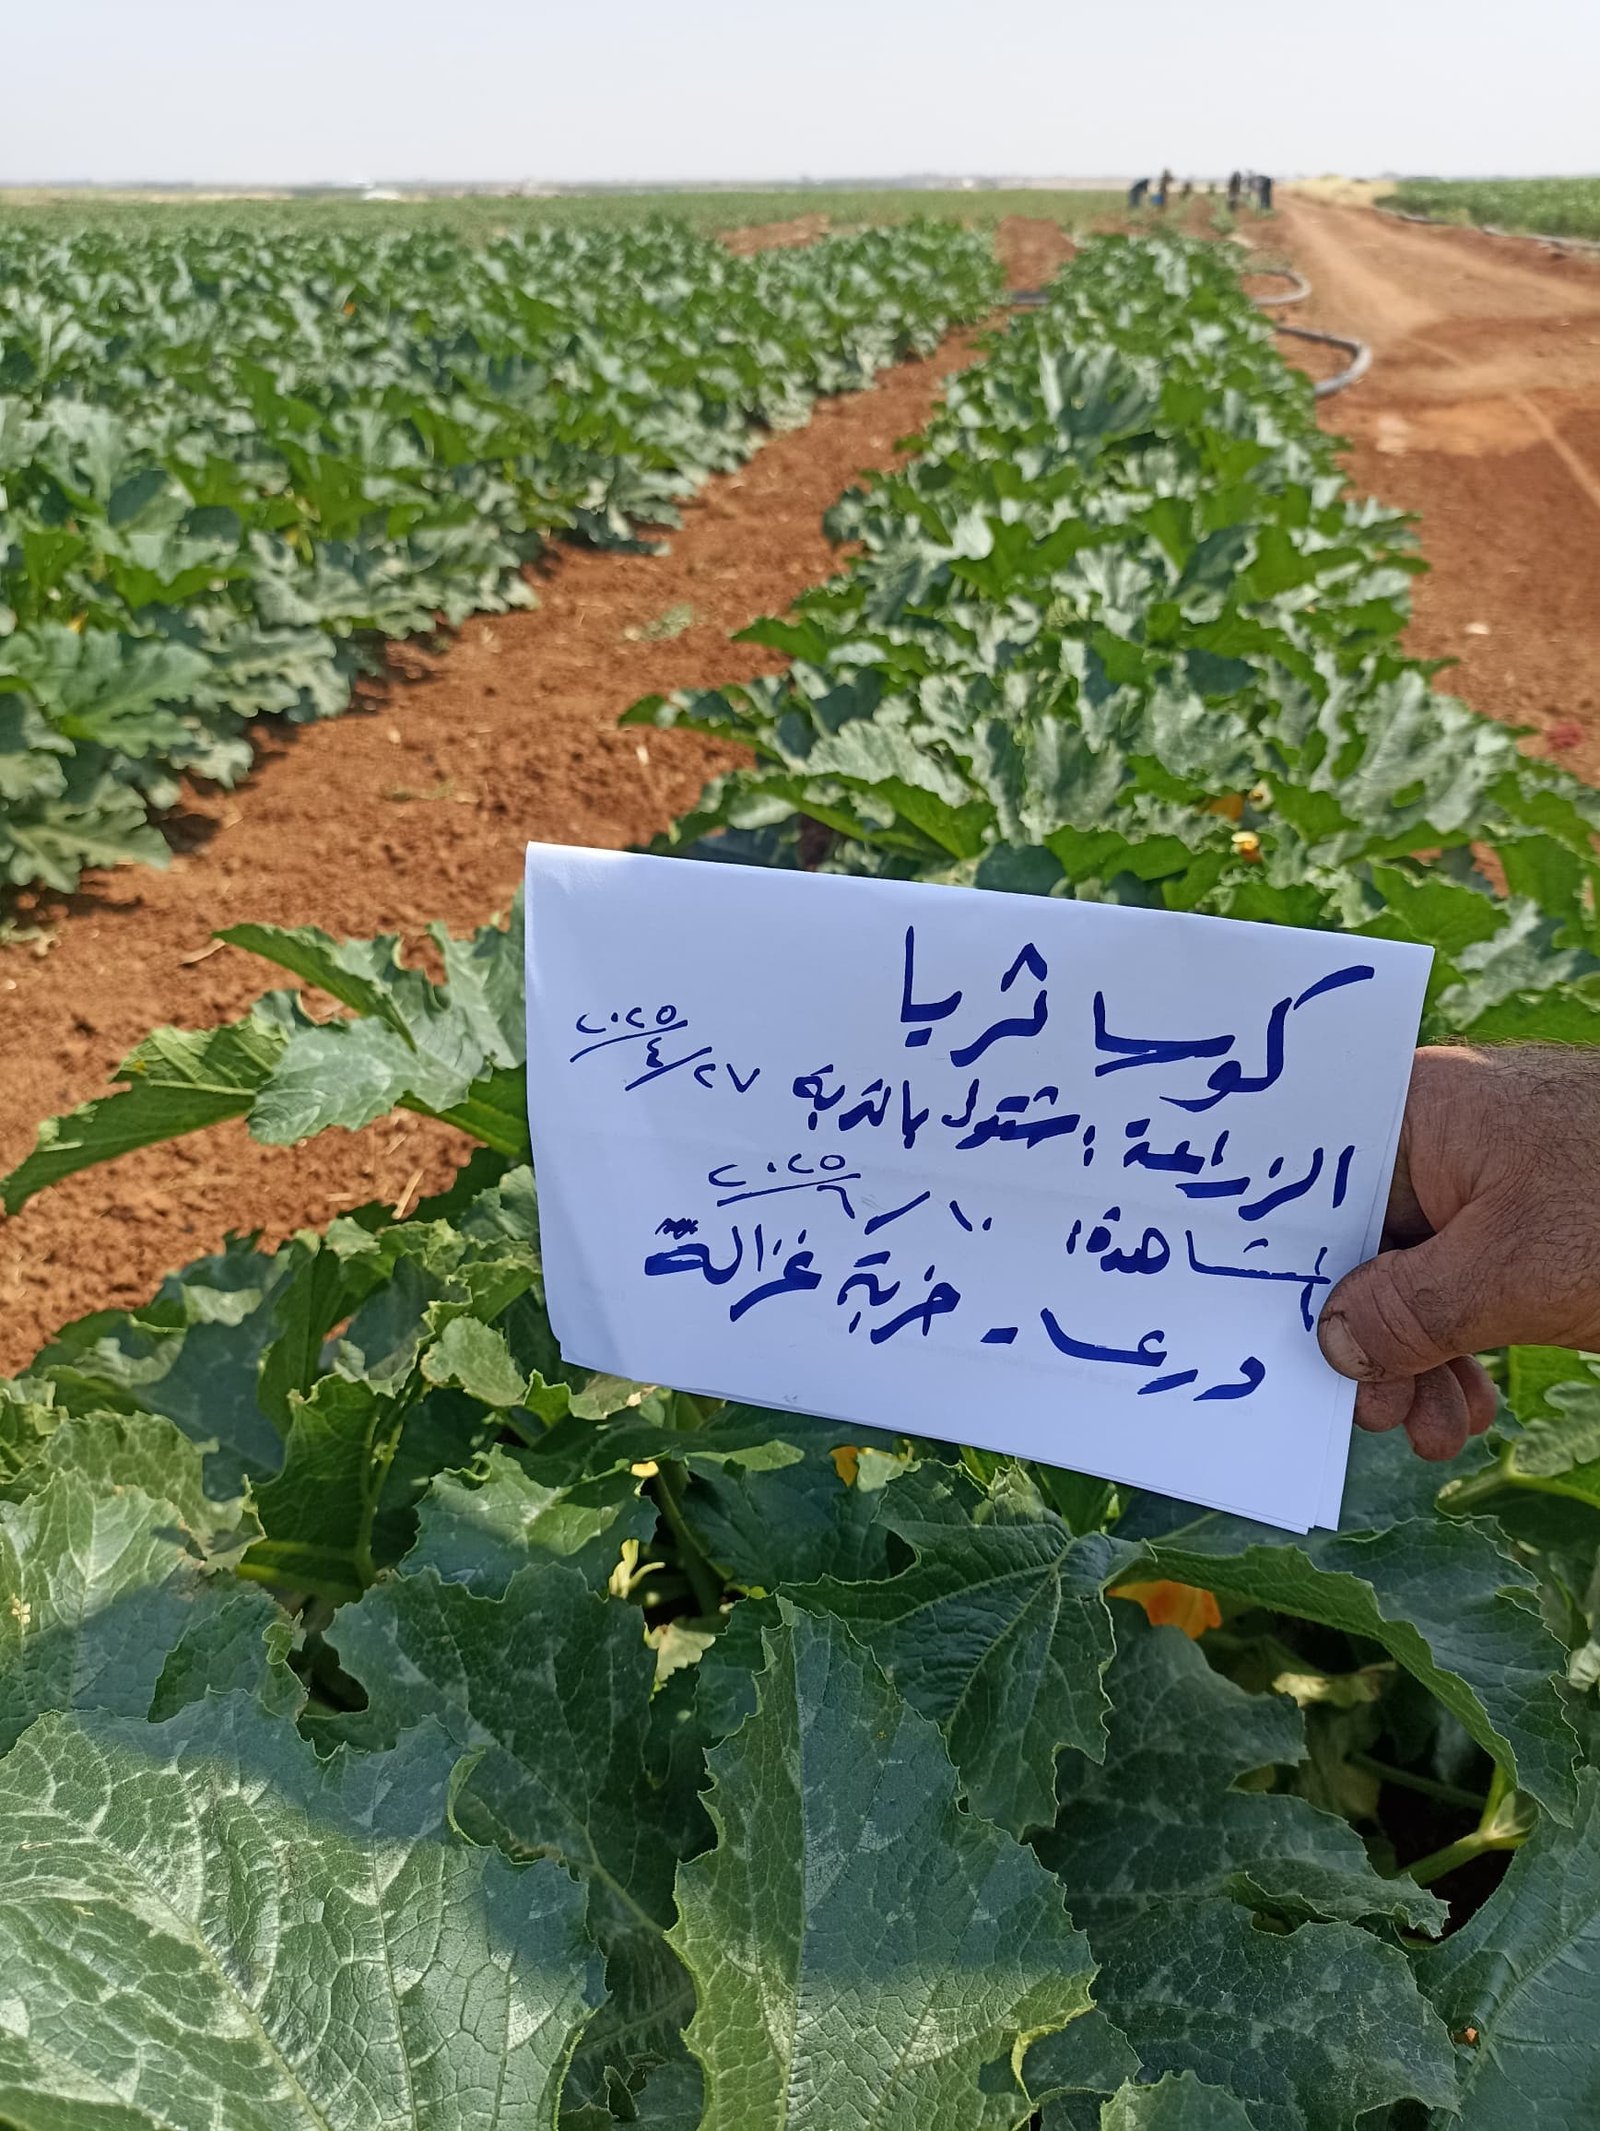 كوسا ثريا
الزراعة: شتول بالتربة ٢٧/٤/٢٠٢٥
المشاهدة: ١٠/٦/٢٠٢٥
درعا - خربة غزالة